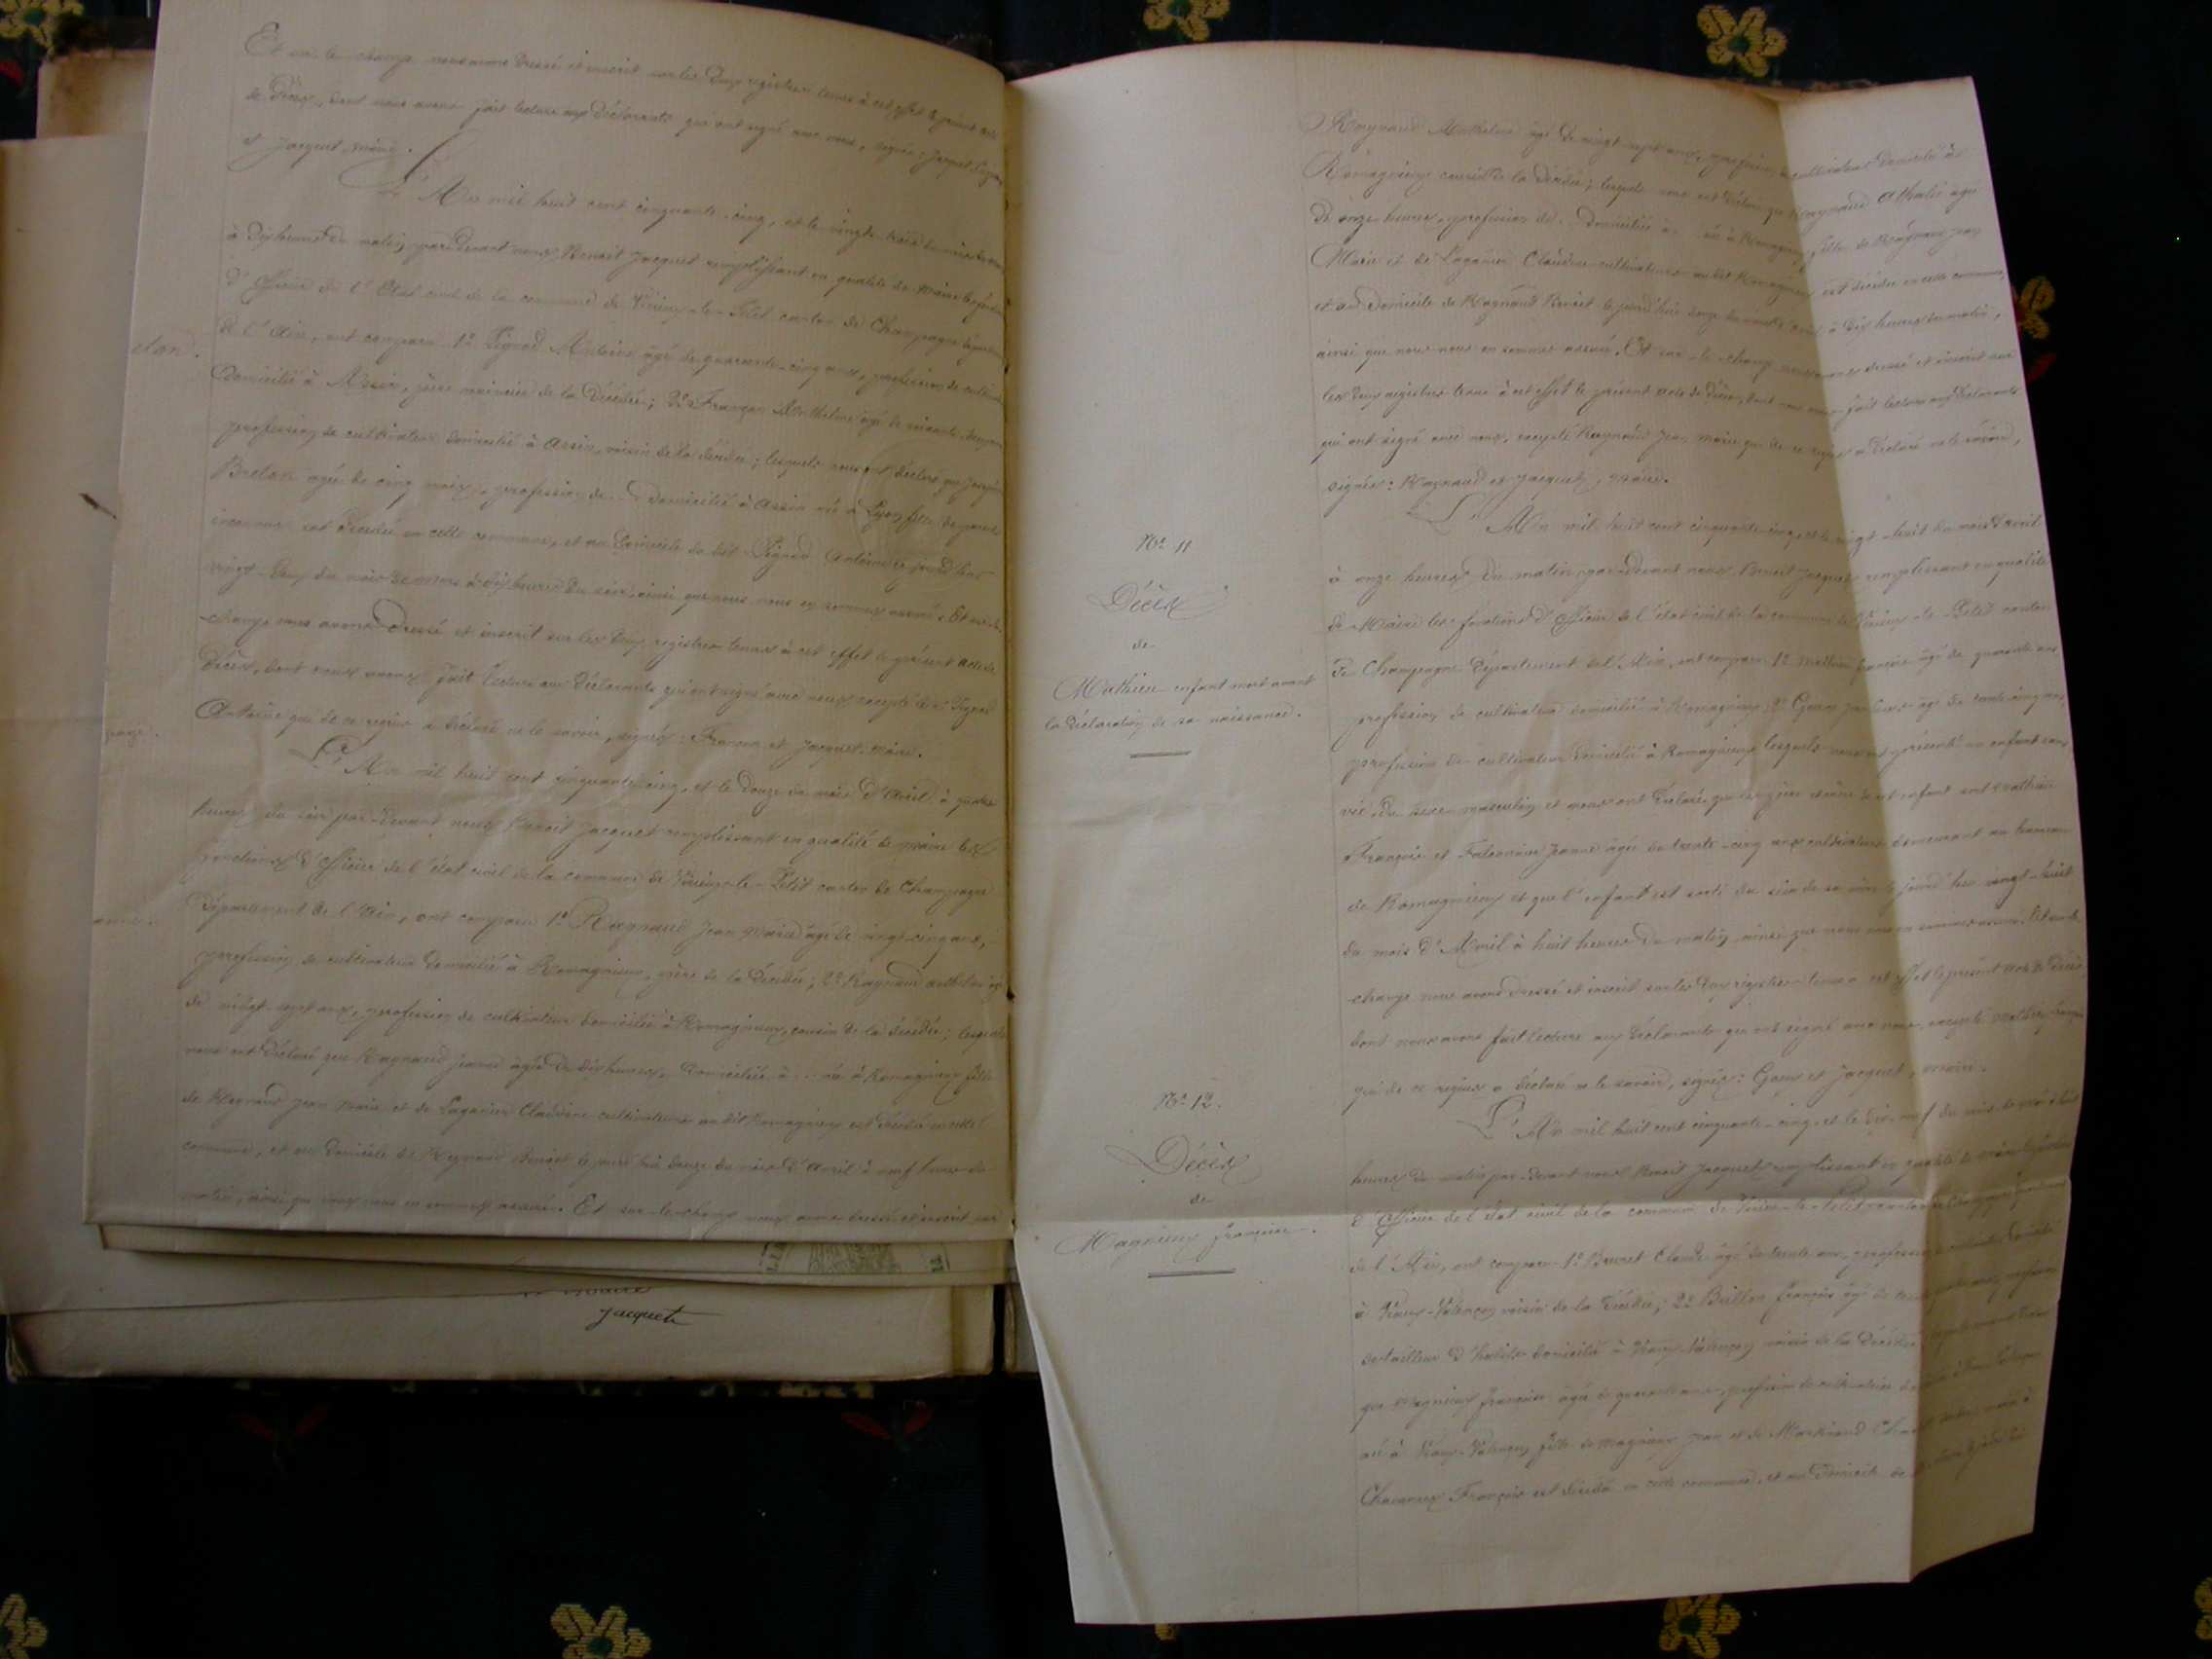 Et sur le champ nous avons dressé et inscrit sur les deux registres tenus à cet effet le présent acte
de décès, dont nous avons fait lecture aux déclarants qui ont signé avec nous, signés: Jacquet
et Jacquet, maire.
L'An mil huit cent cinquante-cinq, et le vingt-trois du mois de mars
à dix heures du matin, par devant nous Benoit Jacquet remplissant en qualité de maire les fonctions
d'officier de l'état civil de la commune de Virieu-le-Petit canton de Champagne département
de l'Ain, ont comparu 1º Pignod Antoine âgé de quarante-cinq ans, profession de cultivateur
domicilié à Assin, père nourricier de la décédée; 2º Françon Anthelme âgé de
profession de cultivateur domicilié à Assin, voisin de la décédée; lesquels nous ont déclaré que
Breton âgée de cinq mois, profession de domiciliée à Assin née à Lyon fille de parents
inconnus est décédée en cette commune, et au domicile du dit Pignod Antoine ce jourd'hui
vingt-deux du mois de mars à dix heures du soir, ainsi que nous nous en sommes assuré. Et sur le
champ nous avons dressé et inscrit sur les deux registres tenus à cet effet le présent acte de
décès, dont nous avons fait lecture aux déclarants qui ont signé avec nous excepté le dt Pignod
Antoine qui de ce requis a déclaré ne le savoir, signés: Françon et Jacquet, maire.
L'An mil huit cent cinquante-cinq, et le douze du mois d'Avril à quatre
heures du soir par-devant nous Benoit Jacquet remplissant en qualité de maire les
fonctions d'officier de l'état civil de la commune de Virieu-le-Petit canton de Champagne
département de l'Ain, ont comparu 1º Raynaud Jean Marie âgé de vingt-cinq ans,
profession de cultivateur domicilié à Romagnieux, père de la décédée; 2º Raynaud Anthelme âgé
de vingt-sept ans, profession de cultivateur domicilié à Romagnieux, cousin de la décédée; lesquels
nous ont déclaré que Raynaud Jeanne âgée de dix heures, domiciliée à née à Romagnieux fille
de Raynaud Jean Marie et de Laganier Claudine cultivateurs au dit Romagnieux est décédée en cette
commune, et au domicile de Raynaud Benoit ce jourd'hui douze du mois d'Avril à neuf heures du
matin, ainsi que nous nous en sommes assuré. Et sur-le-champ nous avons dressé et inscrit sur
Jacquet
Raynaud Anthelme âgé de vingt-sept ans, profession de cultivateur domicilié à
Romagnieux cousin de la décédée; lesquels nous ont déclaré que Raynaud Athalie âgée
de onze heures, profession de domiciliée à née à Romagnieux fille de Raynaud Jean
Marie et de Laganier Claudine cultivateurs au dit Romagnieux est décédée en cette commune,
et au domicile de Raynaud Benoit ce jourd'hui douze du mois d'Avril à dix heures du matin,
ainsi que nous nous en sommes assuré. Et sur-le-champ nous avons dressé et inscrit sur
les deux registres tenus à cet effet le présent acte de décès, dont nous avons fait lecture aux déclarants
qui ont signé avec nous, excepté Raynaud Jean Marie qui de ce requis a déclaré ne le savoir,
signés: Raynaud et Jacquet, maire.
Nº 11
Décès
de
Mathieu enfant mort avant
la déclaration de sa naissance.
L'An mil huit cent cinquante-cinq, et le vingt-huit du mois d'avril
à onze heures du matin, par-devant nous Benoit Jacquet remplissant en qualité
de Maire les fonctions d'officier de l'état civil de la commune de Virieu-le-Petit canton
de Champagne département de l'Ain, ont comparu 1º Mathieu François âgé de quarante ans
profession de cultivateur domicilié à Romagnieux 2º âgé de trente-cinq ans,
profession de cultivateur domicilié à Romagnieux lesquels nous ont présenté un enfant sans
vie, du sexe masculin, et nous ont déclaré que les père et mère du dt enfant sont Mathieu
François et Jeanne âgée de trente-cinq ans cultivateurs demeurant au hameau
de Romagnieux et que l'enfant est sorti du sein de sa mère ce jourd'hui vingt-huit
du mois d'Avril à huit heures du matin, ainsi que nous nous en sommes assuré. Et sur le
champ nous avons dressé et inscrit sur les deux registres tenus à cet effet le présent acte de décès
dont nous avons fait lecture aux déclarants qui ont signé avec nous, excepté Mathieu François
qui de ce requis a déclaré ne le savoir, signés: et Jacquet, maire.
Nº 12.
Décès
de
Magnieux Françoise.
L'An mil huit cent cinquante-cinq, et le dix-neuf du mois de mai à huit
heures du matin par-devant nous Benoit Jacquet remplissant en qualité de maire les fonctions
d'officier de l'état civil de la commune de Virieu-le-Petit canton de Champagne département
de l'Ain, ont comparu 1º Claude âgé de trente ans, profession de cultivateur domicilié
à voisin de la décédée; 2º Billon François âgé de
de tailleur d'habits domicilié à voisin de la décédée
que Magnieux Françoise âgée de quarante ans, profession de cultivatrice
née à fille de Magnieux Jean et de
François est décédée en cette commune, et au domicile de